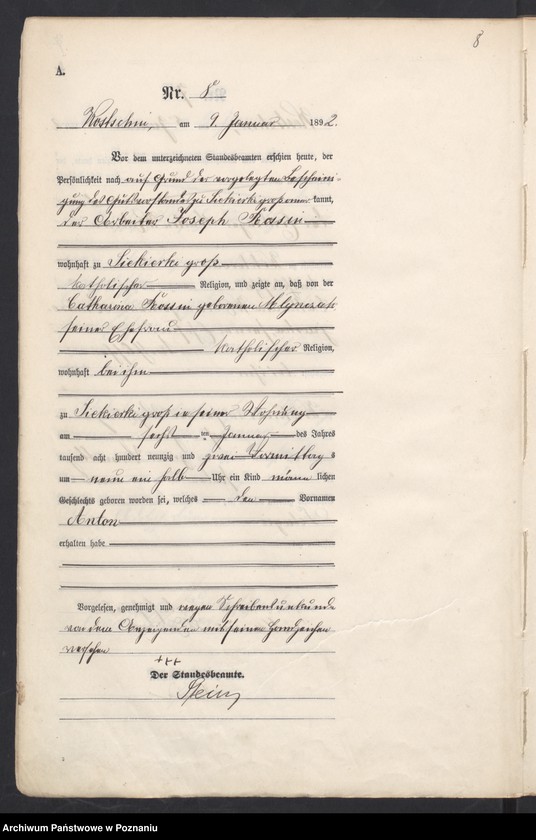 8
A.
Nr. 8
Kostschin, am 9 Januar 1892.
Vor dem unterzeichneten Standesbeamten erschien heute, der
Persönlichkeit nach auf Grund der vorgelegten Bescheini-
gung des Gutsvorstandes zu Siekierki gross aner kannt,
der Arbeiter Joseph Rossin
wohnhaft zu Siekierki gross
katholischer Religion, und zeigte an, daß von der
Catharina Rossin geborenen Mlynczak
seiner Ehefrau
katholischer Religion,
wohnhaft bei ihm
zu Siekierki gross in seiner Wohnung
am sechsten Januar des Jahres
tausend acht hundert neunzig und zwei Vormittags
um neun ein halb Uhr ein Kind männlichen
Geschlechts geboren worden sei, welches den Vornamen
Anton
erhalten habe
Vorgelesen, genehmigt und wegen Schreibensunkunde
von dem Anzeigenden mit seinem Handzeichen
versehen
+++
Der Standesbeamte.
Archiwum Państwowe w Poznaniu